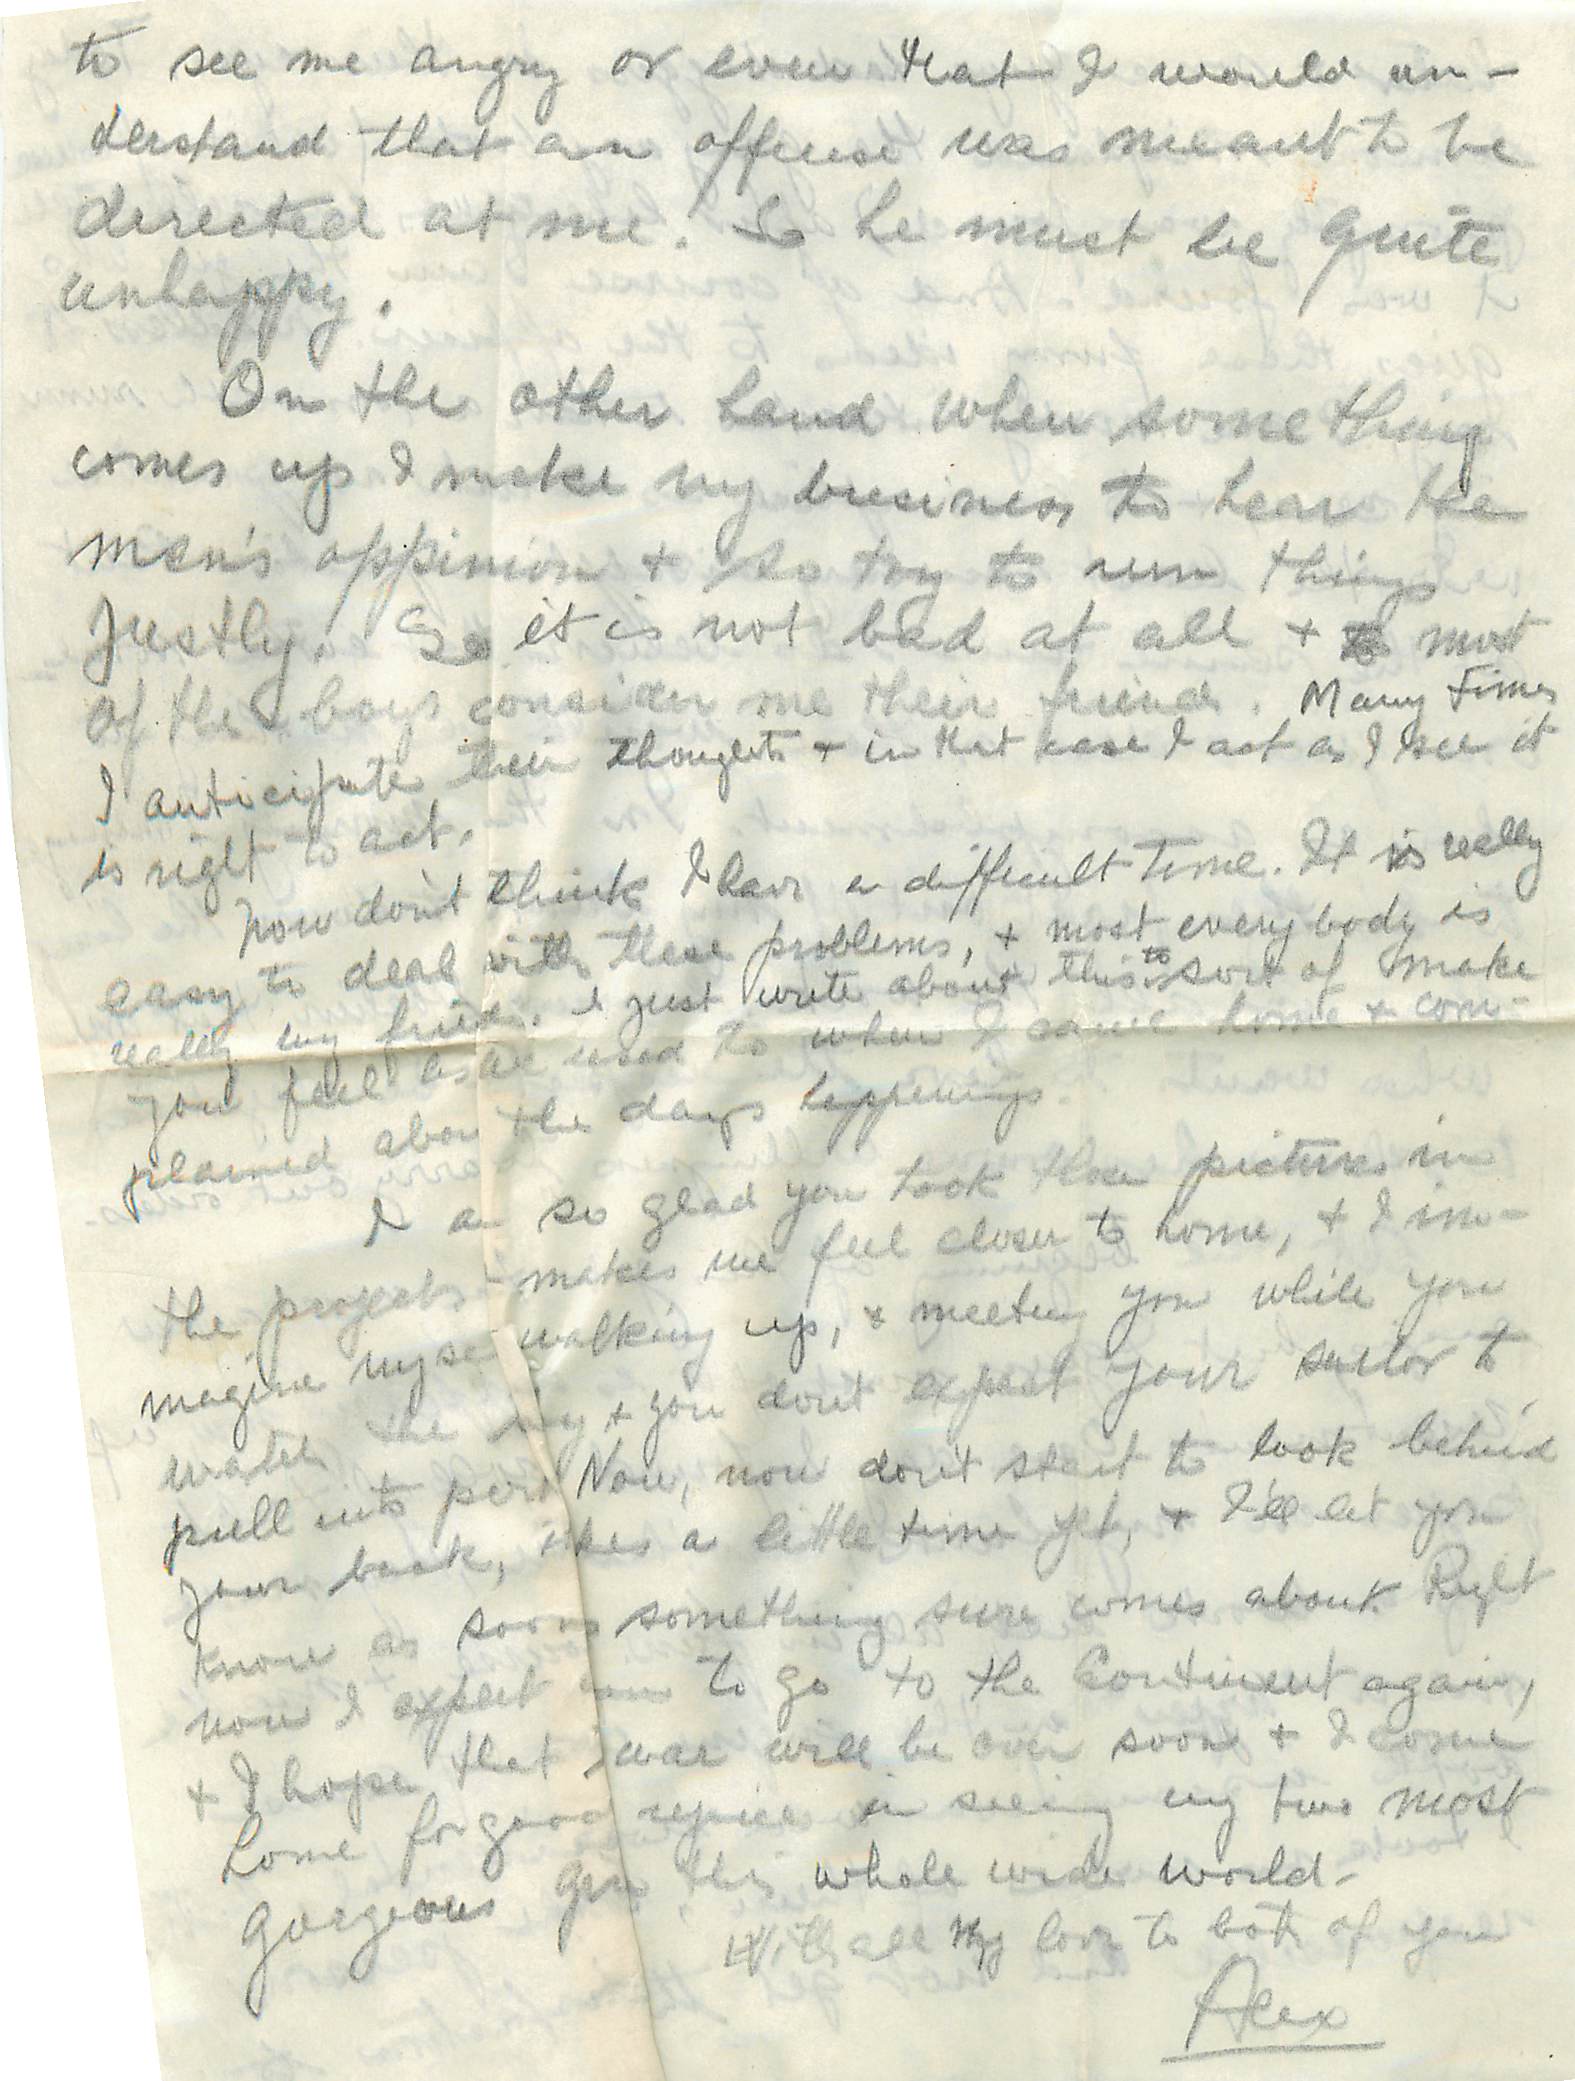 to see me angry or even that I would un-
derstand that an offense was meant to be
directed at me. So he must be quite
unhappy.
On the other hand when something
comes up I make my business to hear the
men's oppinion + so try to run things
justly. So it is not bad at all + most
of the boys consider me their friend. Many times
I anticipate their thoughts + in that case I act as I see it
is right to act.
Now don't think I have a difficult time. It is really
easy to deal with these problems, + most everybody is
really my friend. I just write about this to sort of make
you feel as we used to when I came home + com-
plained about the days happenings.
I am so glad you took these pictures in
the projects - makes me feel closer to home, + I im-
magine myself walking up, + meeting you while you
water the + you don't expect your suitor to
pull into port Now, now don't start to look behind
your back, takes a little time yet, + I'll let you
know as soon as something sure comes about. Right
now I expect to go to the Continent again,
+ I hope that war will be over soon + I come
home for good rejoice in seeing my two most
gorgeous this whole wide world -
With all my love to both of you
Alex